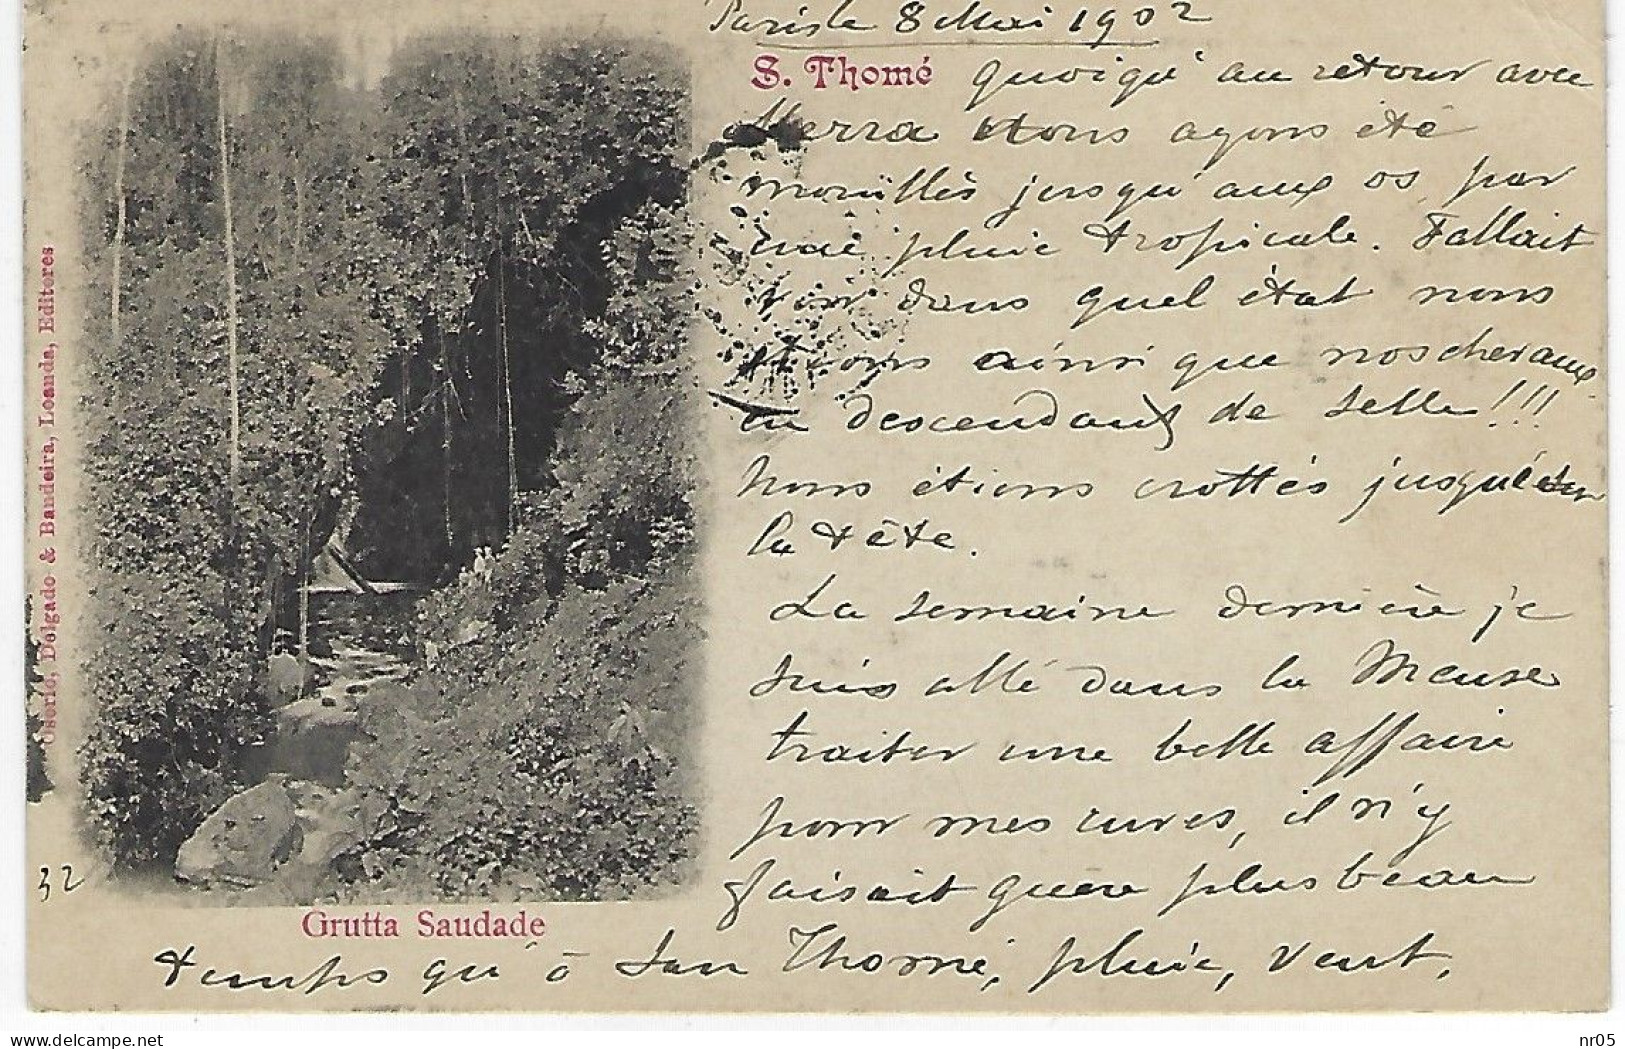 Paris le 8 Mai 1902
S. Thomé
quoiqu'au retour avec
Merra nous ayons été
mouillés jusqu'aux os, par
une pluie tropicale. Fallait
voir dans quel état nous
étions ainsi que nos chevaux
en descendant de selle!!!
nous étions crottés jusque sur
la tête.
La semaine dernière je
suis allé dans la Meuse
traiter une belle affaire
pour mes cuves, il n'y
faisait guère plus beau
temps qu'à San Thomé, pluie, vent,
Grutta Saudade
Osorio, Delgado & Bandeira, Loanda, Editores
32
delcampe.net
nr05